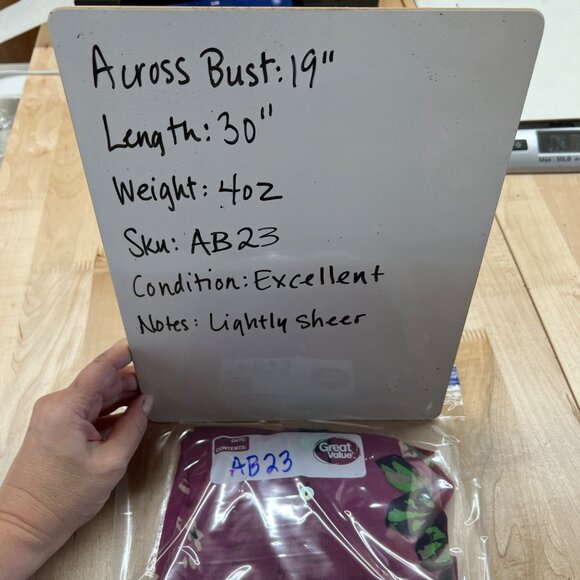 Across Bust: 19"
Length: 30"
Weight: 4oz
Sku: AB23
Condition: Excellent
Notes: Lightly sheer
Max: 50LB
DATE:
CONTENTS:
Great Value
AB23